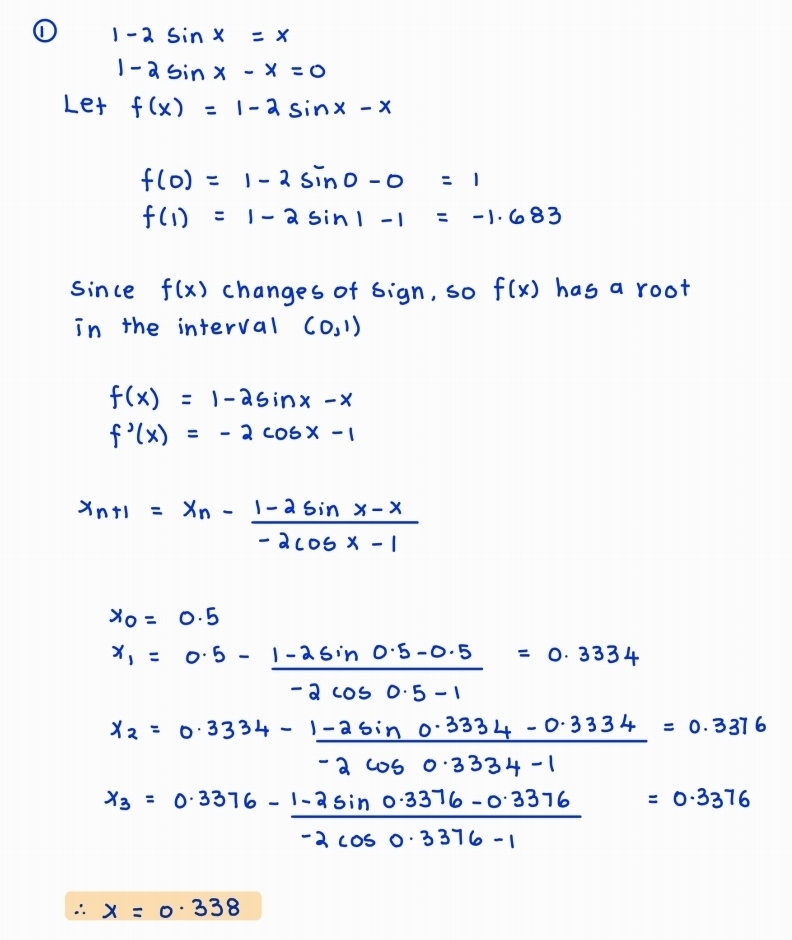 ① 1-2 sin x = x
1-2 sin x - x = 0
Let f(x) = 1-2 sinx -x
f(0) = 1-2 sin 0 -0 = 1
f(1) = 1-2 sin 1 -1 = -1.683
Since f(x) changes of sign, so f(x) has a root
in the interval (0,1)
f(x) = 1-2sinx -x
f'(x) = -2 cosx -1
xₙ₊₁ = xₙ - (1-2 sin x-x)/(-2cos x -1)
x₀ = 0.5
x₁ = 0.5 - (1-2sin 0.5-0.5)/(-2 cos 0.5-1) = 0.3334
x₂ = 0.3334 - (1-2 sin 0.3334 - 0.3334)/(-2 cos 0.3334-1) = 0.3376
x₃ = 0.3376 - (1-2sin 0.3376-0.3376)/(-2 cos 0.3376 -1) = 0.3376
∴ x = 0.338